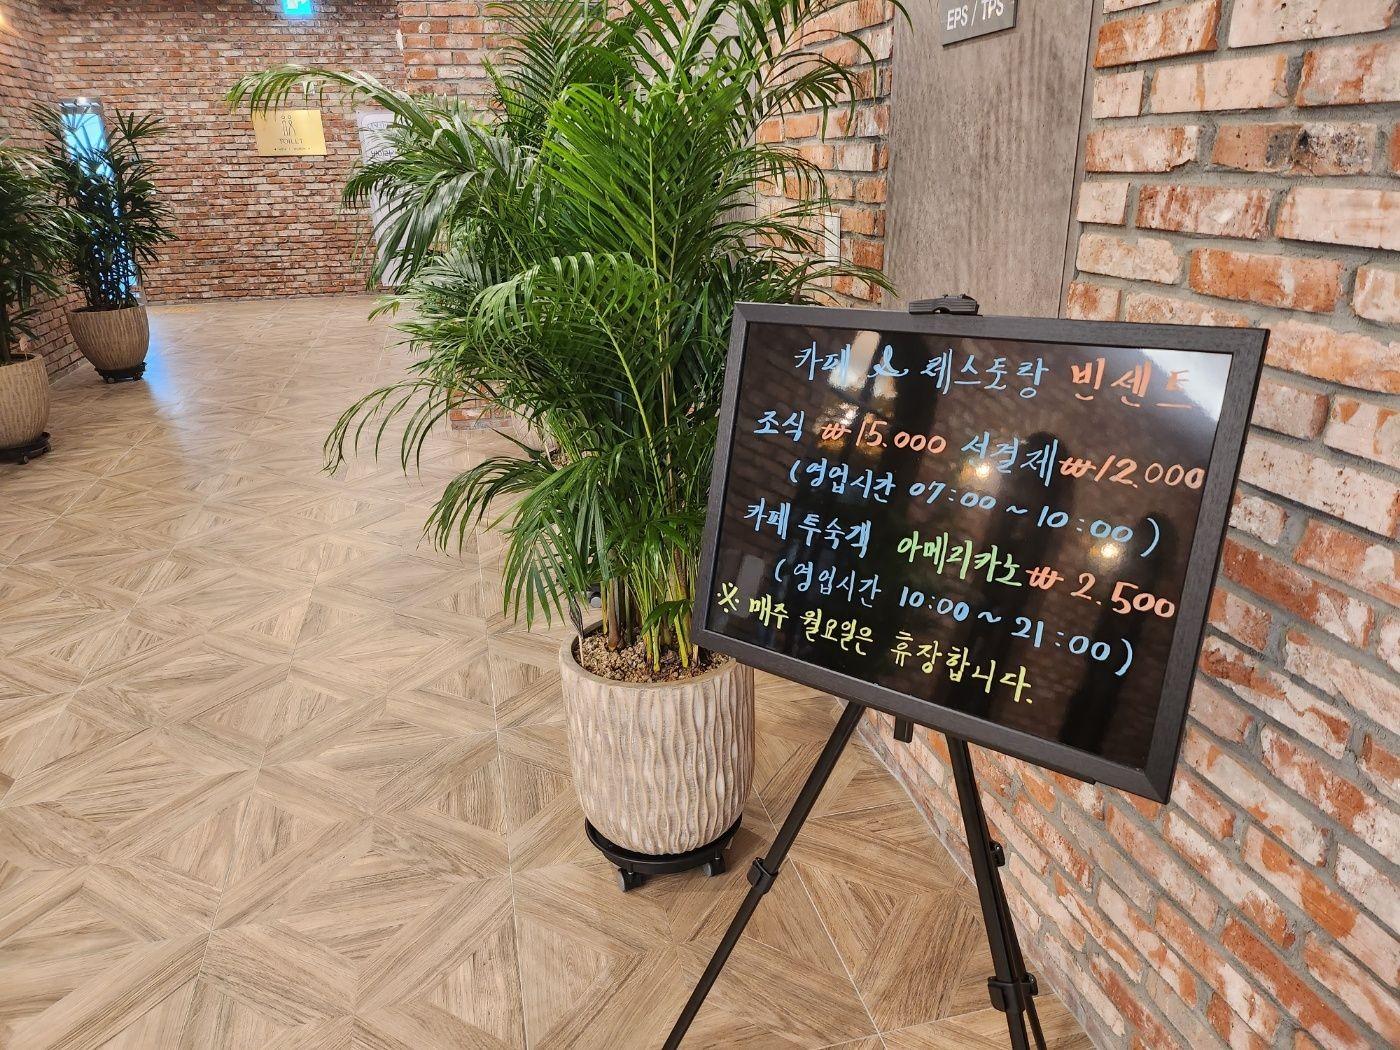 EPS / TPS
TOILET
카페 & 레스토랑 빈센트
조식 ₩15.000 선결제 ₩12.000
(영업시간 07:00 ~ 10:00)
카페 투숙객 아메리카노 ₩2.500
(영업시간 10:00 ~ 21:00)
※ 매주 월요일은 휴장합니다.